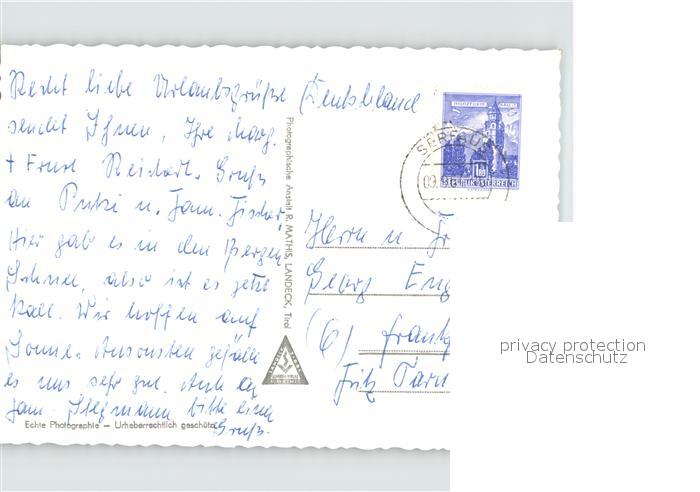 Recht liebe Urlaubsgrüße (Deutschland
sendet Ihnen, Ihre Marg.
+ Ernst Reichert. Gruß
an Putzi u. Fam. Fischer,
Hier gab es in den Bergen
Schnee, also ist es jetzt
kalt. Wir hoffen auf
Sonne. Ansonsten gefällt
es uns sehr gut. Auch an
Fam. Stegmann bitte einen
Gruß.
Echte Photographie – Urheberrechtlich geschützt
Photographische Anstalt R. MATHIS, LANDECK, Tirol
MÜNZTURM HALL
1.80
REPUBLIK ÖSTERREICH
09.
Herrn u. Fr
Georg Eng
(6) Frankf
Fritz Tarn
privacy protection
Datenschutz